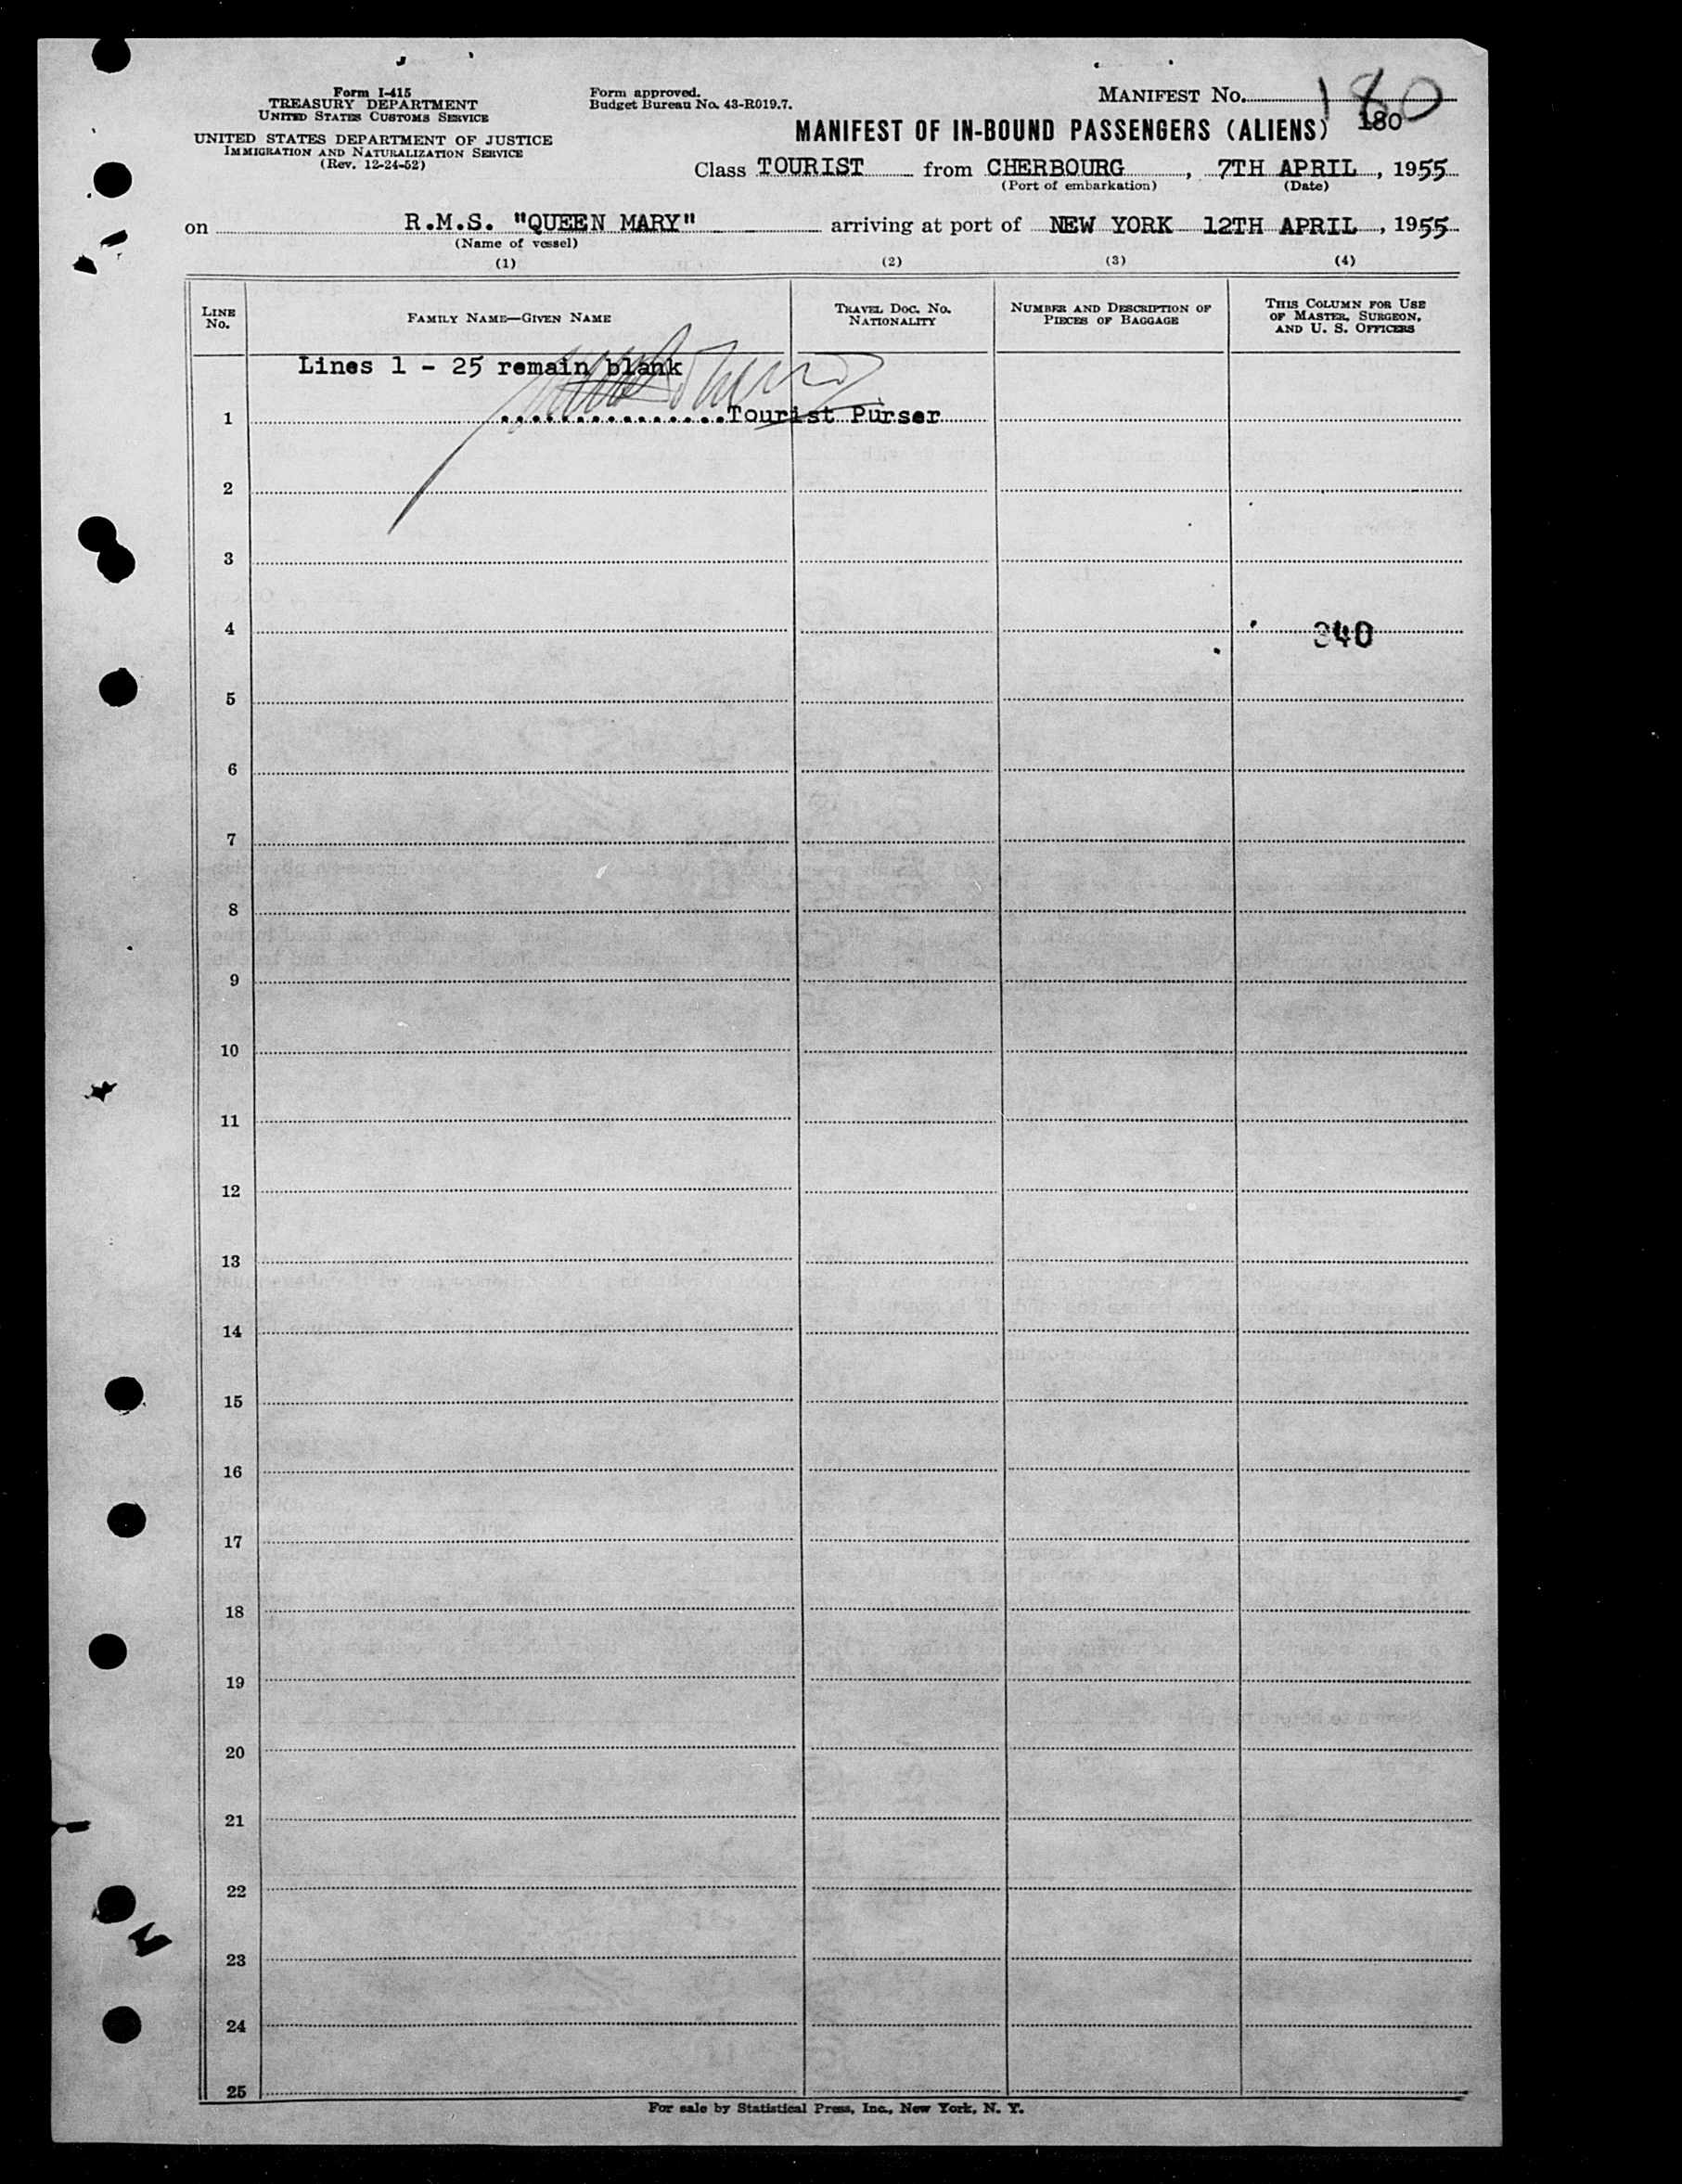 Form I-415
TREASURY DEPARTMENT
UNITED STATES CUSTOMS SERVICE
UNITED STATES DEPARTMENT OF JUSTICE
IMMIGRATION AND NATURALIZATION SERVICE
(Rev. 12-24-52)
Form approved.
Budget Bureau No. 43-R019.7.
MANIFEST No. 180
180
MANIFEST OF IN-BOUND PASSENGERS (ALIENS)
Class TOURIST from CHERBOURG, 7TH APRIL, 1955
(Port of embarkation) (Date)
on R.M.S. "QUEEN MARY" arriving at port of NEW YORK 12TH APRIL, 1955
(Name of vessel)
(1) (2) (3) (4)
LINE No. FAMILY NAME—GIVEN NAME TRAVEL DOC. No. NATIONALITY NUMBER AND DESCRIPTION OF PIECES OF BAGGAGE THIS COLUMN FOR USE OF MASTER, SURGEON, AND U. S. OFFICERS
Lines 1 - 25 remain blank
1 ...............Tourist Purser
2
3
4 340
5
6
7
8
9
10
11
12
13
14
15
16
17
18
19
20
21
22
23
24
25
For sale by Statistical Press, Inc., New York, N. Y.